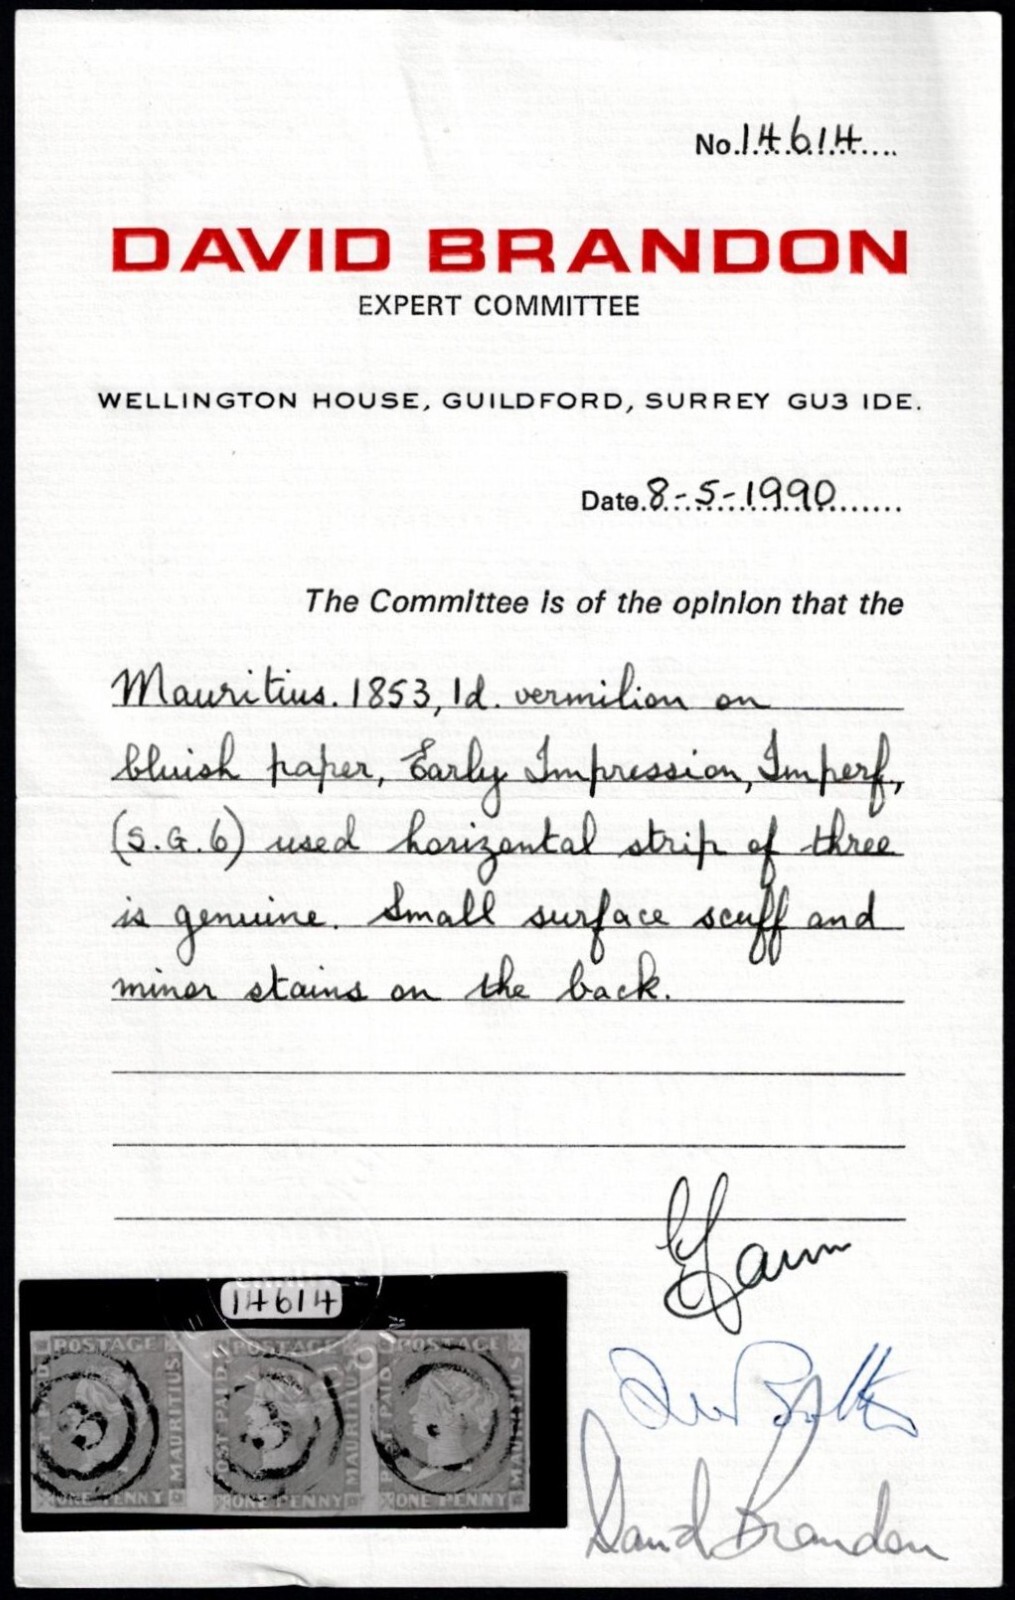 No. 14614
DAVID BRANDON
EXPERT COMMITTEE
WELLINGTON HOUSE, GUILDFORD, SURREY GU3 IDE.
Date. 8-5-1990
The Committee is of the opinion that the
Mauritius. 1853, 1d. vermilion on
bluish paper, Early Impression, Imperf,
(S.G.6) used horizontal strip of three
is genuine. Small surface scuff and
minor stains on the back.
14614
POSTAGE POSTAGE POSTAGE
POST PAID MAURITIUS POST PAID MAURITIUS POST PAID MAURITIUS
3 3
ONE PENNY ONE PENNY ONE PENNY
David Brandon